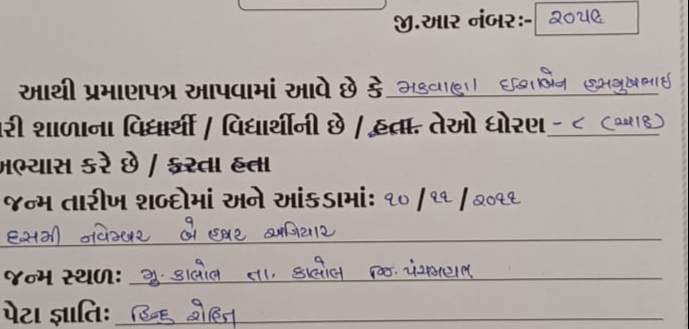 જી.આર નંબરઃ- ૨૦૫૯
આથી પ્રમાણપત્ર આપવામાં આવે છે કે મકવાણા ઇશાબેન હસમુખભાઇ
રી શાળાના વિદ્યાર્થી / વિદ્યાર્થીની છે / હતા. તેઓ ધોરણ - ૮ (આઠ)
અભ્યાસ કરે છે / કરતા હતા
જન્મ તારીખ શબ્દોમાં અને આંકડામાંઃ ૧૦/૧૧/૨૦૧૧
દસમી નવેમ્બર બે હજાર અગિયાર
જન્મ સ્થળઃ મુ. કાલોલ તા. કાલોલ જિ. પંચમહાલ
પેટા જ્ઞાતિઃ હિન્દુ રોહિત